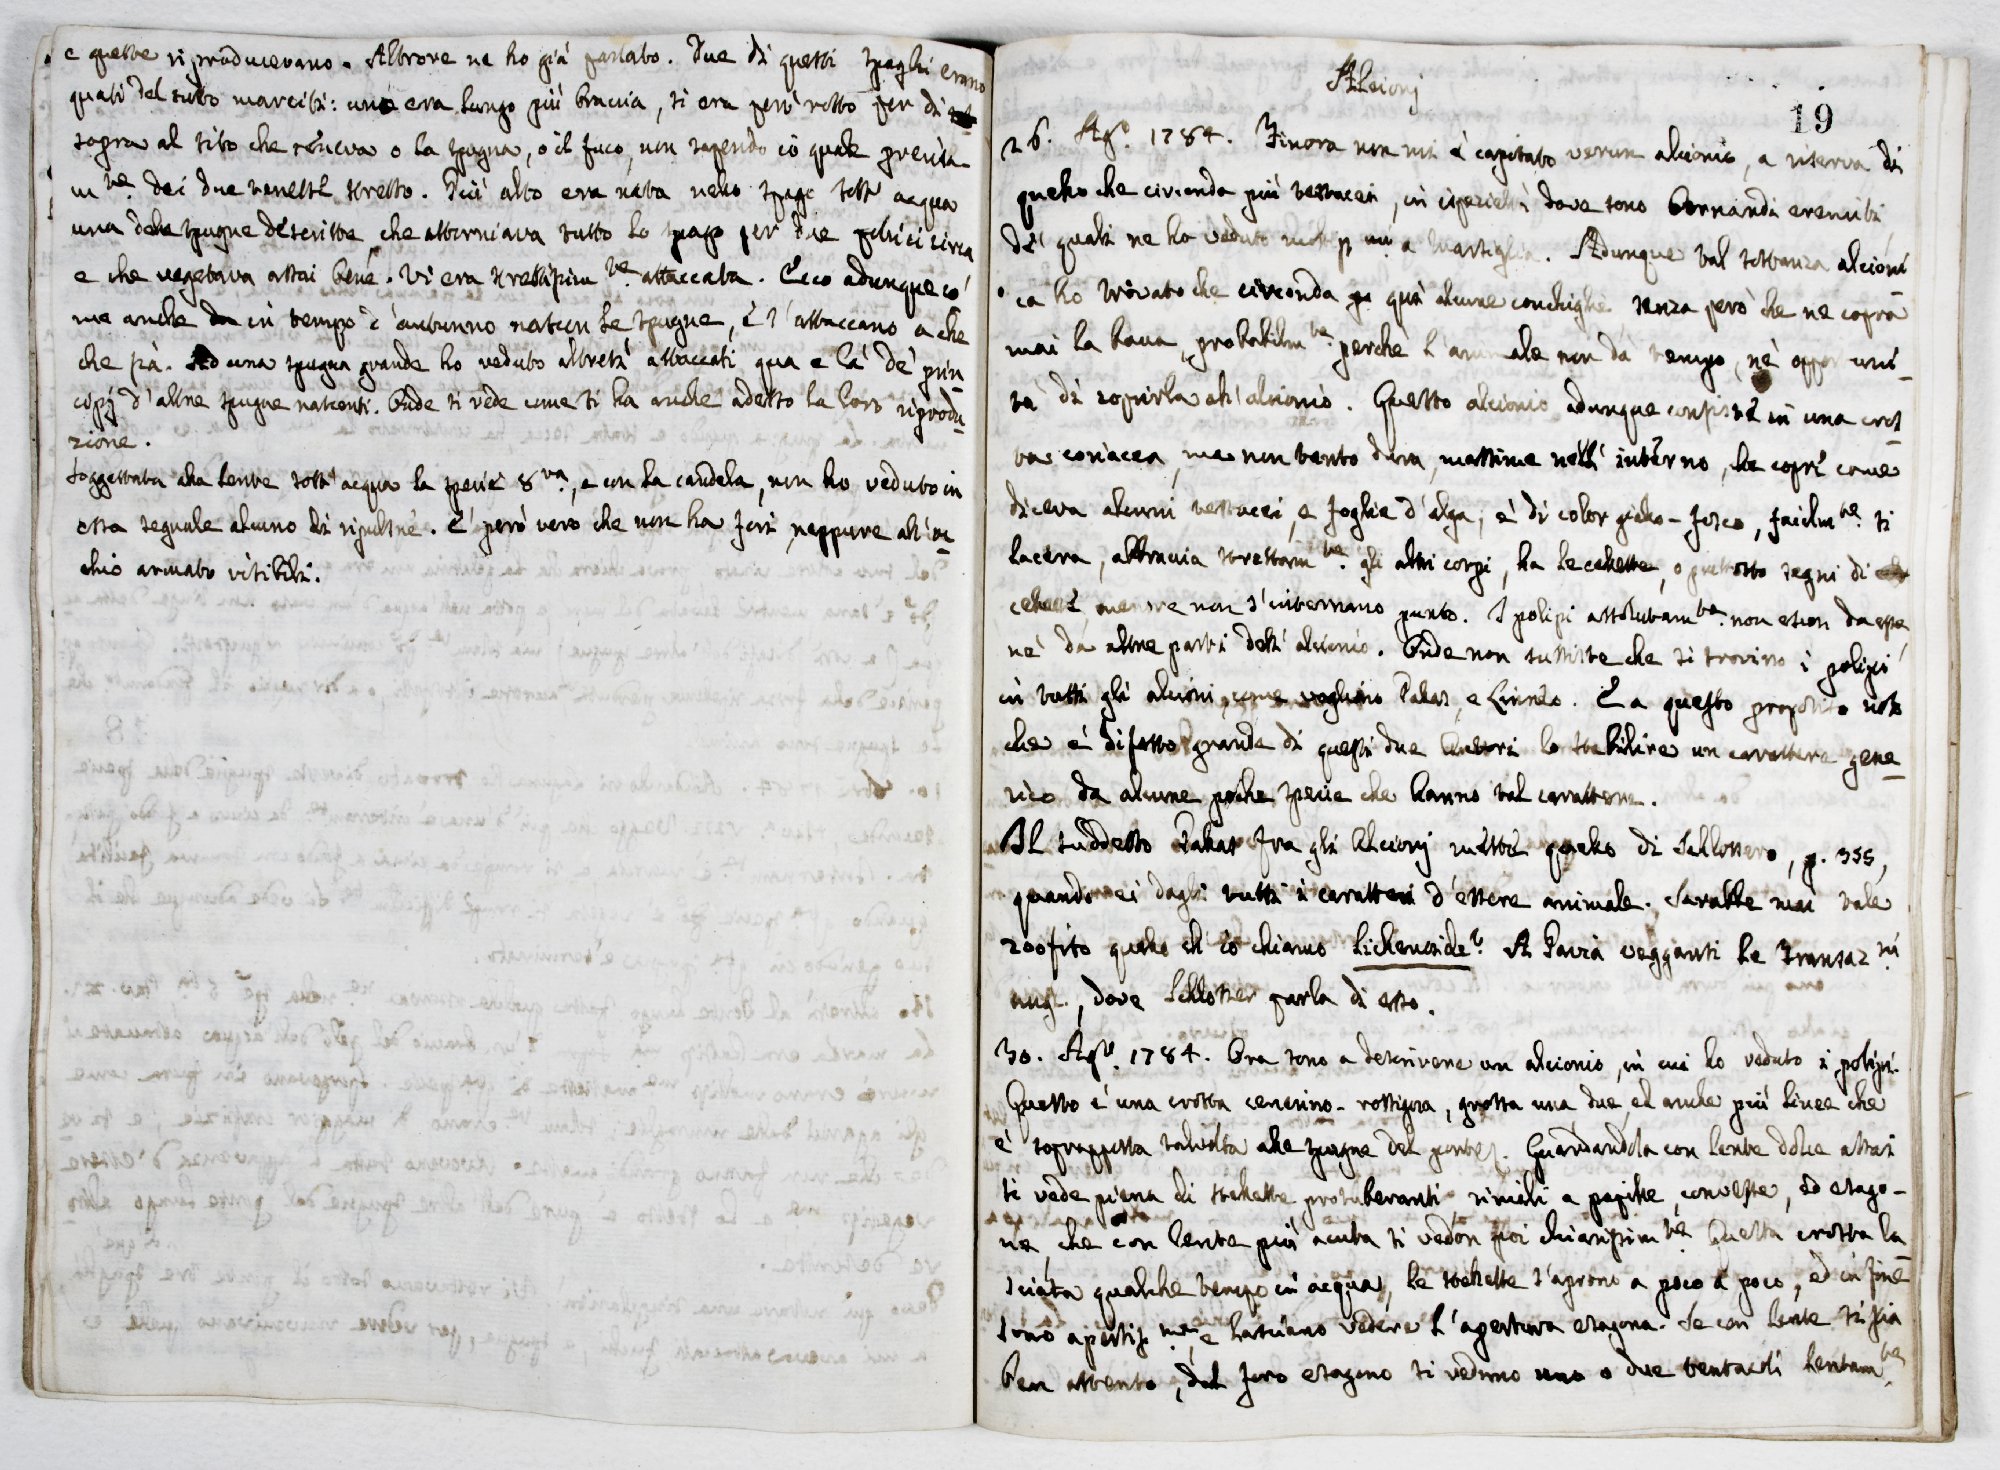 e queste riproducevano. Altrove ne ho già parlato. Due di questi spaghi erano
quasi del tutto marciti: uno era lungo più braccia, si era però rotto per di
sopra al sito che teneva o la spugna, o il fuco, non sapendo io quale precisa-
m.te dei due vonesse stretto. Più alto era nata nello spago sott'acqua
una delle spugne descritte che attorniava tutto lo spago per due pollici circa
e che vegetava assai bene. Vi era strettissim.te attaccata. Ecco adunque co-
me anche in tempo d'autunno nascon le spugne, e s'attaccano a che
che sia. Ad una spugna grande ho veduto altresì attaccati qua e là de' prin-
cipj d'altre spugne nascenti. Onde si vede come si ha anche adesso la loro riprodu-
zione.
Soggettata alla lente sott'acqua la specie 8.va, e con la candela, non ho veduto in
essa segnale alcuno di ripulse. E' però vero che non ha fori neppure all'oc-
chio armato visibili.
Alcionj
19
26. Ag.o 1784. Finora non mi è capitato verun alcionio, a riserva di
quello che circonda più testacei, in ispecieltà dove sono Bernardi eremiti
de' quali ne ho veduto a Marsiglia. Adunque tal sostanza alcioni-
ca ho trovato che circonda qui alcune conchiglie senza però che ne copra
mai la bava, probabilm.te perchè l'animale non dà tempo, nè opportuni-
tà di coprirla all'alcionio. Questo alcionio adunque consiste in una cros-
ta coriacea, ma non tanto dura, massime nell'interno, che copre come
diceva alcuni testacei, e foglie d'alga; è di color giallo-fosco, facilm.te si
lacera, abbraccia strettam.te gli altri corpi, ha le cellette, o piuttosto segni di
cellette, mentre non s'internano punto. I polipi assolutam.te non escon da esse,
nè da altre parti dell'alcionio. Onde non sussiste che si trovino i polipi
in tutti gli alcioni, come vogliono Pallas, e Linneo. E a questo proposito noto
che è difetto grande di questi due Autori lo stabilire un carattere gene-
rico da alcune poche specie che hanno tal carattere.
Il suddetto Pallas fra gli Alcionj mette quello di Schlossero, p. 355,
quando ei dagli tutti i caratteri d'essere animale. Sarebbe mai tale
zoofito quello ch'io chiamo Lichenoide? A Pavia veggansi le Transaz.ni
angl., dove Schlosser parla di esso.
30. Ag.o 1784. Ora sono a descrivere un alcionio, in cui ho veduto i polipi.
Questo è una crosta cenerino-rossigna, grossa una due, ed anche più linee che
è soprapposta talvolta alle spugne del porto. Guardandola con lente dolce assai
si vede piena di stellette protuberanti simili a papille, convesse, ed esago-
ne, che con lente più acuta si vedon poi chiarissim.te Questa crosta la-
sciata qualche tempo in acqua, le stellette s'aprono a poco a poco, ed in fine
sono apertiss.me, e lasciano vedere l'apertura esagona. Se con lente si sia
ben attento, dal foro esagono si vedono uno o due tentacoli lentam.te